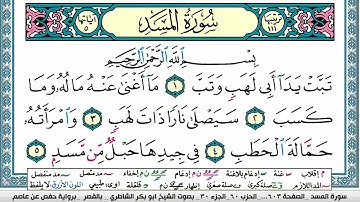 سُورَةُ المَسَدِ
ترتيبها ١١١
آياتها ٥
بِسْمِ اللَّهِ الرَّحْمَٰنِ الرَّحِيمِ
تَبَّتْ يَدَا أَبِي لَهَبٍ وَتَبَّ ١ مَا أَغْنَىٰ عَنْهُ مَالُهُ وَمَا
كَسَبَ ٢ سَيَصْلَىٰ نَارًا ذَاتَ لَهَبٍ ٣ وَامْرَأَتُهُ
حَمَّالَةَ الْحَطَبِ ٤ فِي جِيدِهَا حَبْلٌ مِّن مَّسَدٍ ٥
سورة المسد الصفحة ٦٠٣ ... الحزب ٦٠ الجزء ٣٠ بصوت الشيخ أبو بكر الشاطري بالقصر برواية حفص عن عاصم